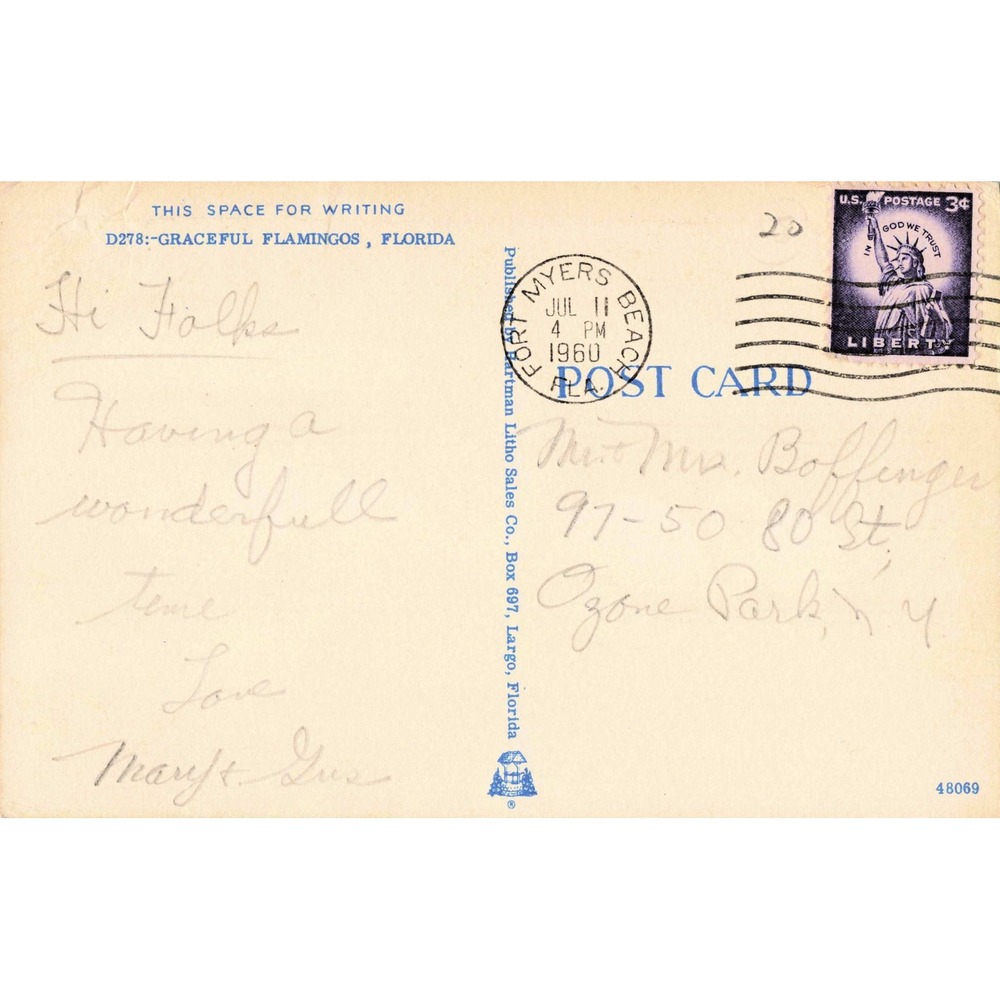 THIS SPACE FOR WRITING
D278:-GRACEFUL FLAMINGOS, FLORIDA
Hi Folks
Having a
wonderfull
time
Love
Mary & Gus
Published by Hartman Litho Sales Co., Box 697, Largo, Florida
®
20
U.S. POSTAGE 3¢
IN GOD WE TRUST
LIBERTY
FORT MYERS BEACH
JUL 11
4 PM
1960
FLA.
POST CARD
Mr. & Mrs. Boffinger
97-50 80 St,
Ozone Park, N Y.
48069